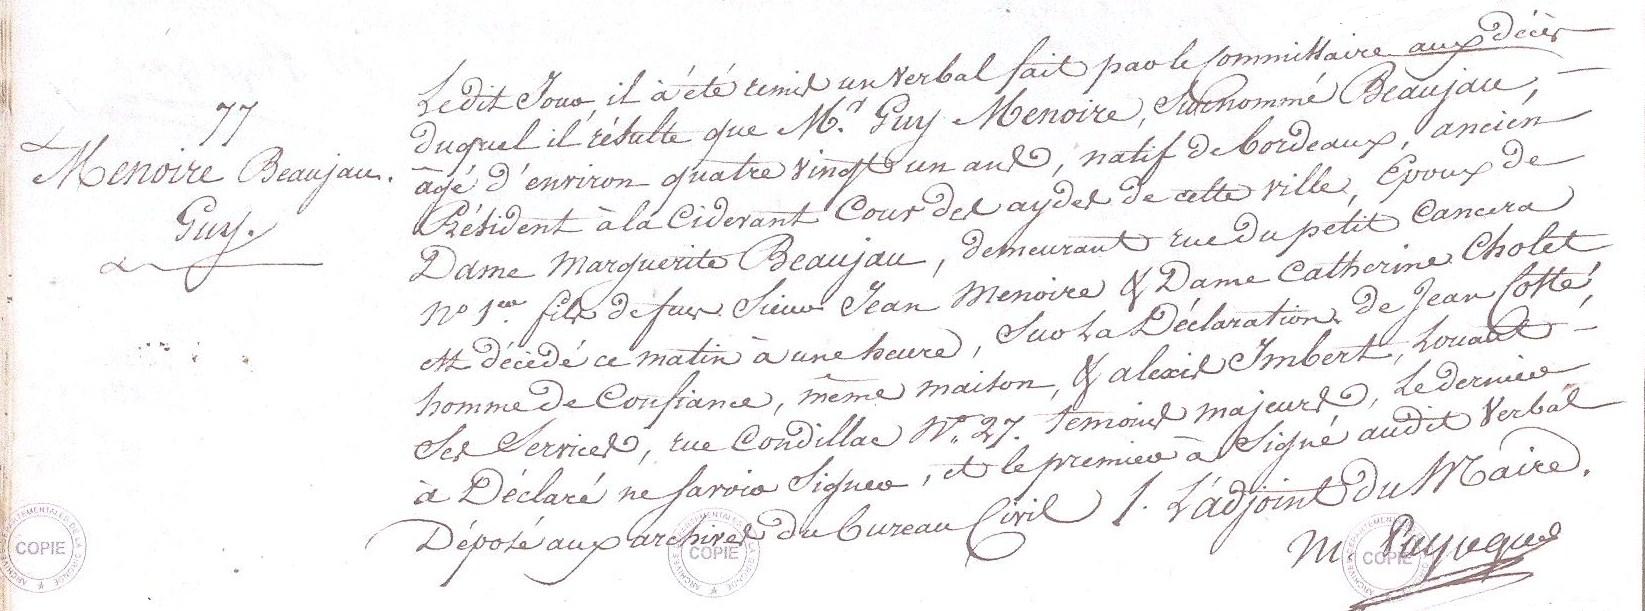 77
Menoire Beaujau.
Guy.
Ledit Jour il à été remis un Verbal fait par le Commissaire aux décès
duquel il résulte que M.r Guy Menoire, Surnommé Beaujau,
âgé d'environ quatre vingt un ans, natif de bordeaux, ancién
Président à la Cidevant Cour des aydes de cette ville, Epoux de
Dame Marguerite Beaujau, demeurant rue du petit Cancera
N° 1.er fils de feus Sieur Jean Menoire & Dame Catherine Cholet
est décédé ce matin à une heure, Sur La Déclaration de Jean Cotté,
homme de Confiance, même maison, & alexis Imbert, Louant
Ses Services, rue Condillac N.° 27. temoins majeurs, Le dernier
à Déclaré ne Savoir Signer, et le premier à Signé audit Verbal
Déposé aux archives du bureau Civil /. L'adjoint du Maire.
ARCHIVES DEPARTEMENTALES DE LA GIRONDE
COPIE
ARCHIVES DEPARTEMENTALES DE LA GIRONDE
COPIE
ARCHIVES DEPARTEMENTALES DE LA GIRONDE
COPIE